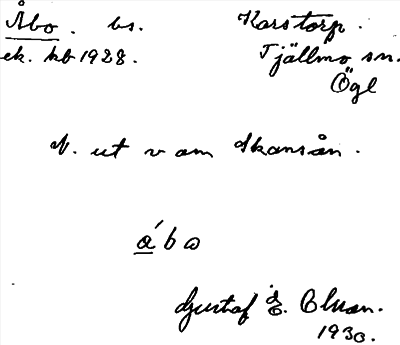 Åbo. bs. Karstorp.
ek. kb 1928. Tjällmo sn.
Ögl
N. ut v om Skansån.
ábo
Gustaf E. Clson.
1930.